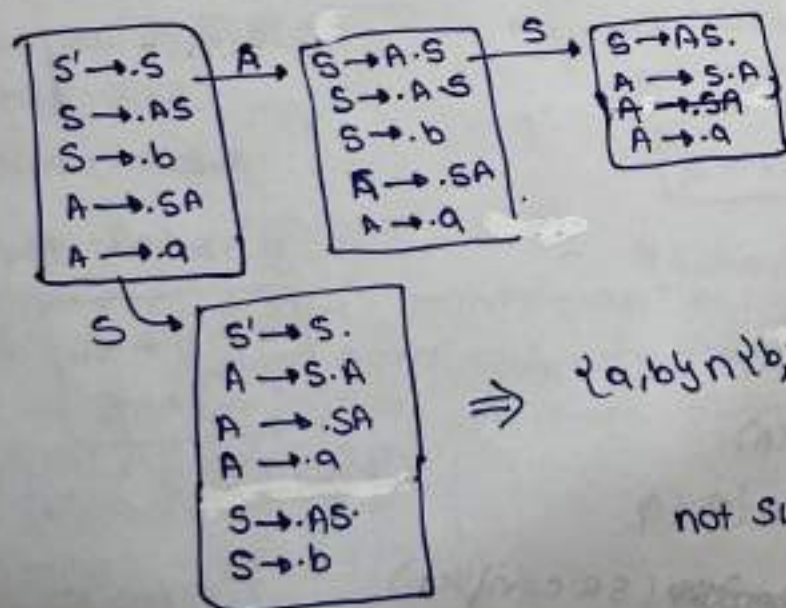 S' → .S
S → .AS
S → .b
A → .SA
A → .a
A
S → A.S
S → .AS
S → .b
A → .SA
A → .a
S
S → AS.
A → S.A
A → .SA
A → .a
S
S' → S.
A → S.A
A → .SA
A → .a
S → .AS.
S → .b
⇒ {a,b} ∩ {b,
not